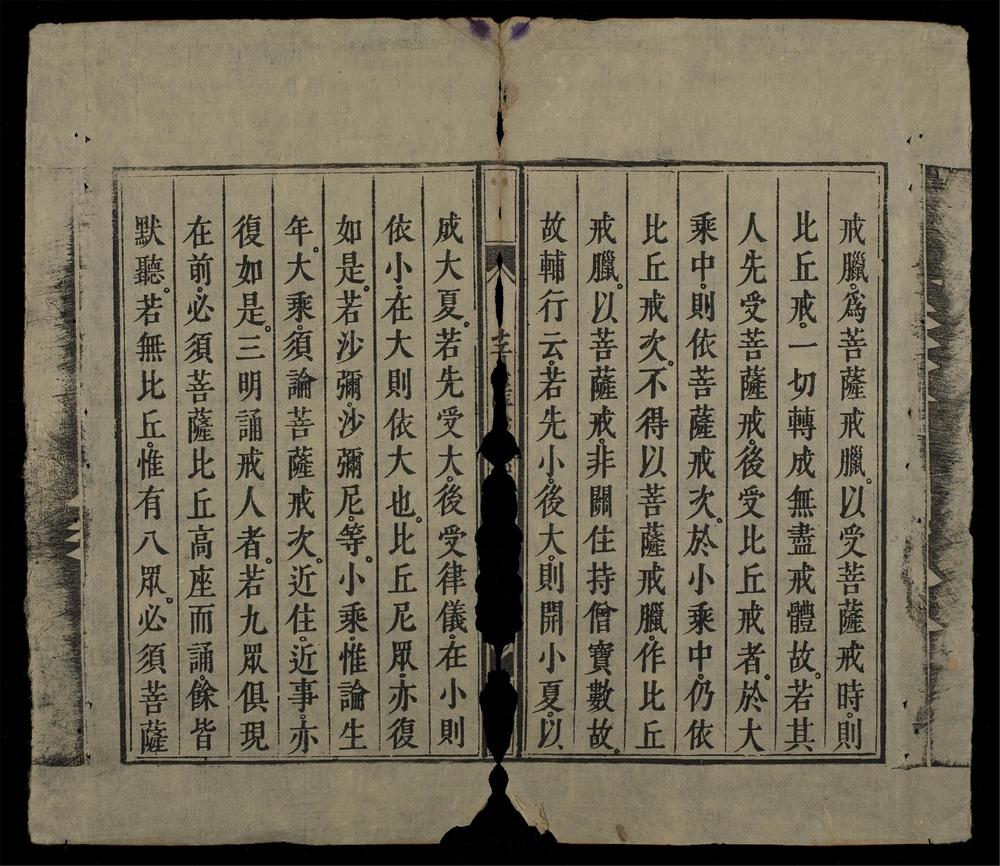 戒臘。爲菩薩戒臘。以受菩薩戒時。則
比丘戒。一切轉成無盡戒體故。若其
人先受菩薩戒。後受比丘戒者。於大
乘中。則依菩薩戒次。於小乘中。仍依
比丘戒次。不得以菩薩戒臘。作比丘
戒臘。以菩薩戒。非關住持僧寶數故。
故輔行云。若先小後大。則開小夏。以
成大夏。若先受大。後受律儀。在小則
依小。在大則依大也。比丘尼眾。亦復
如是。若沙彌。沙彌尼。等。小乘。惟論生
年。大乘。須論菩薩戒次。近住。近事。亦
復如是。三明誦戒人者。若九眾俱現
在前。必須菩薩比丘高座而誦。餘皆
默聽。若無比丘。惟有八眾。必須菩薩